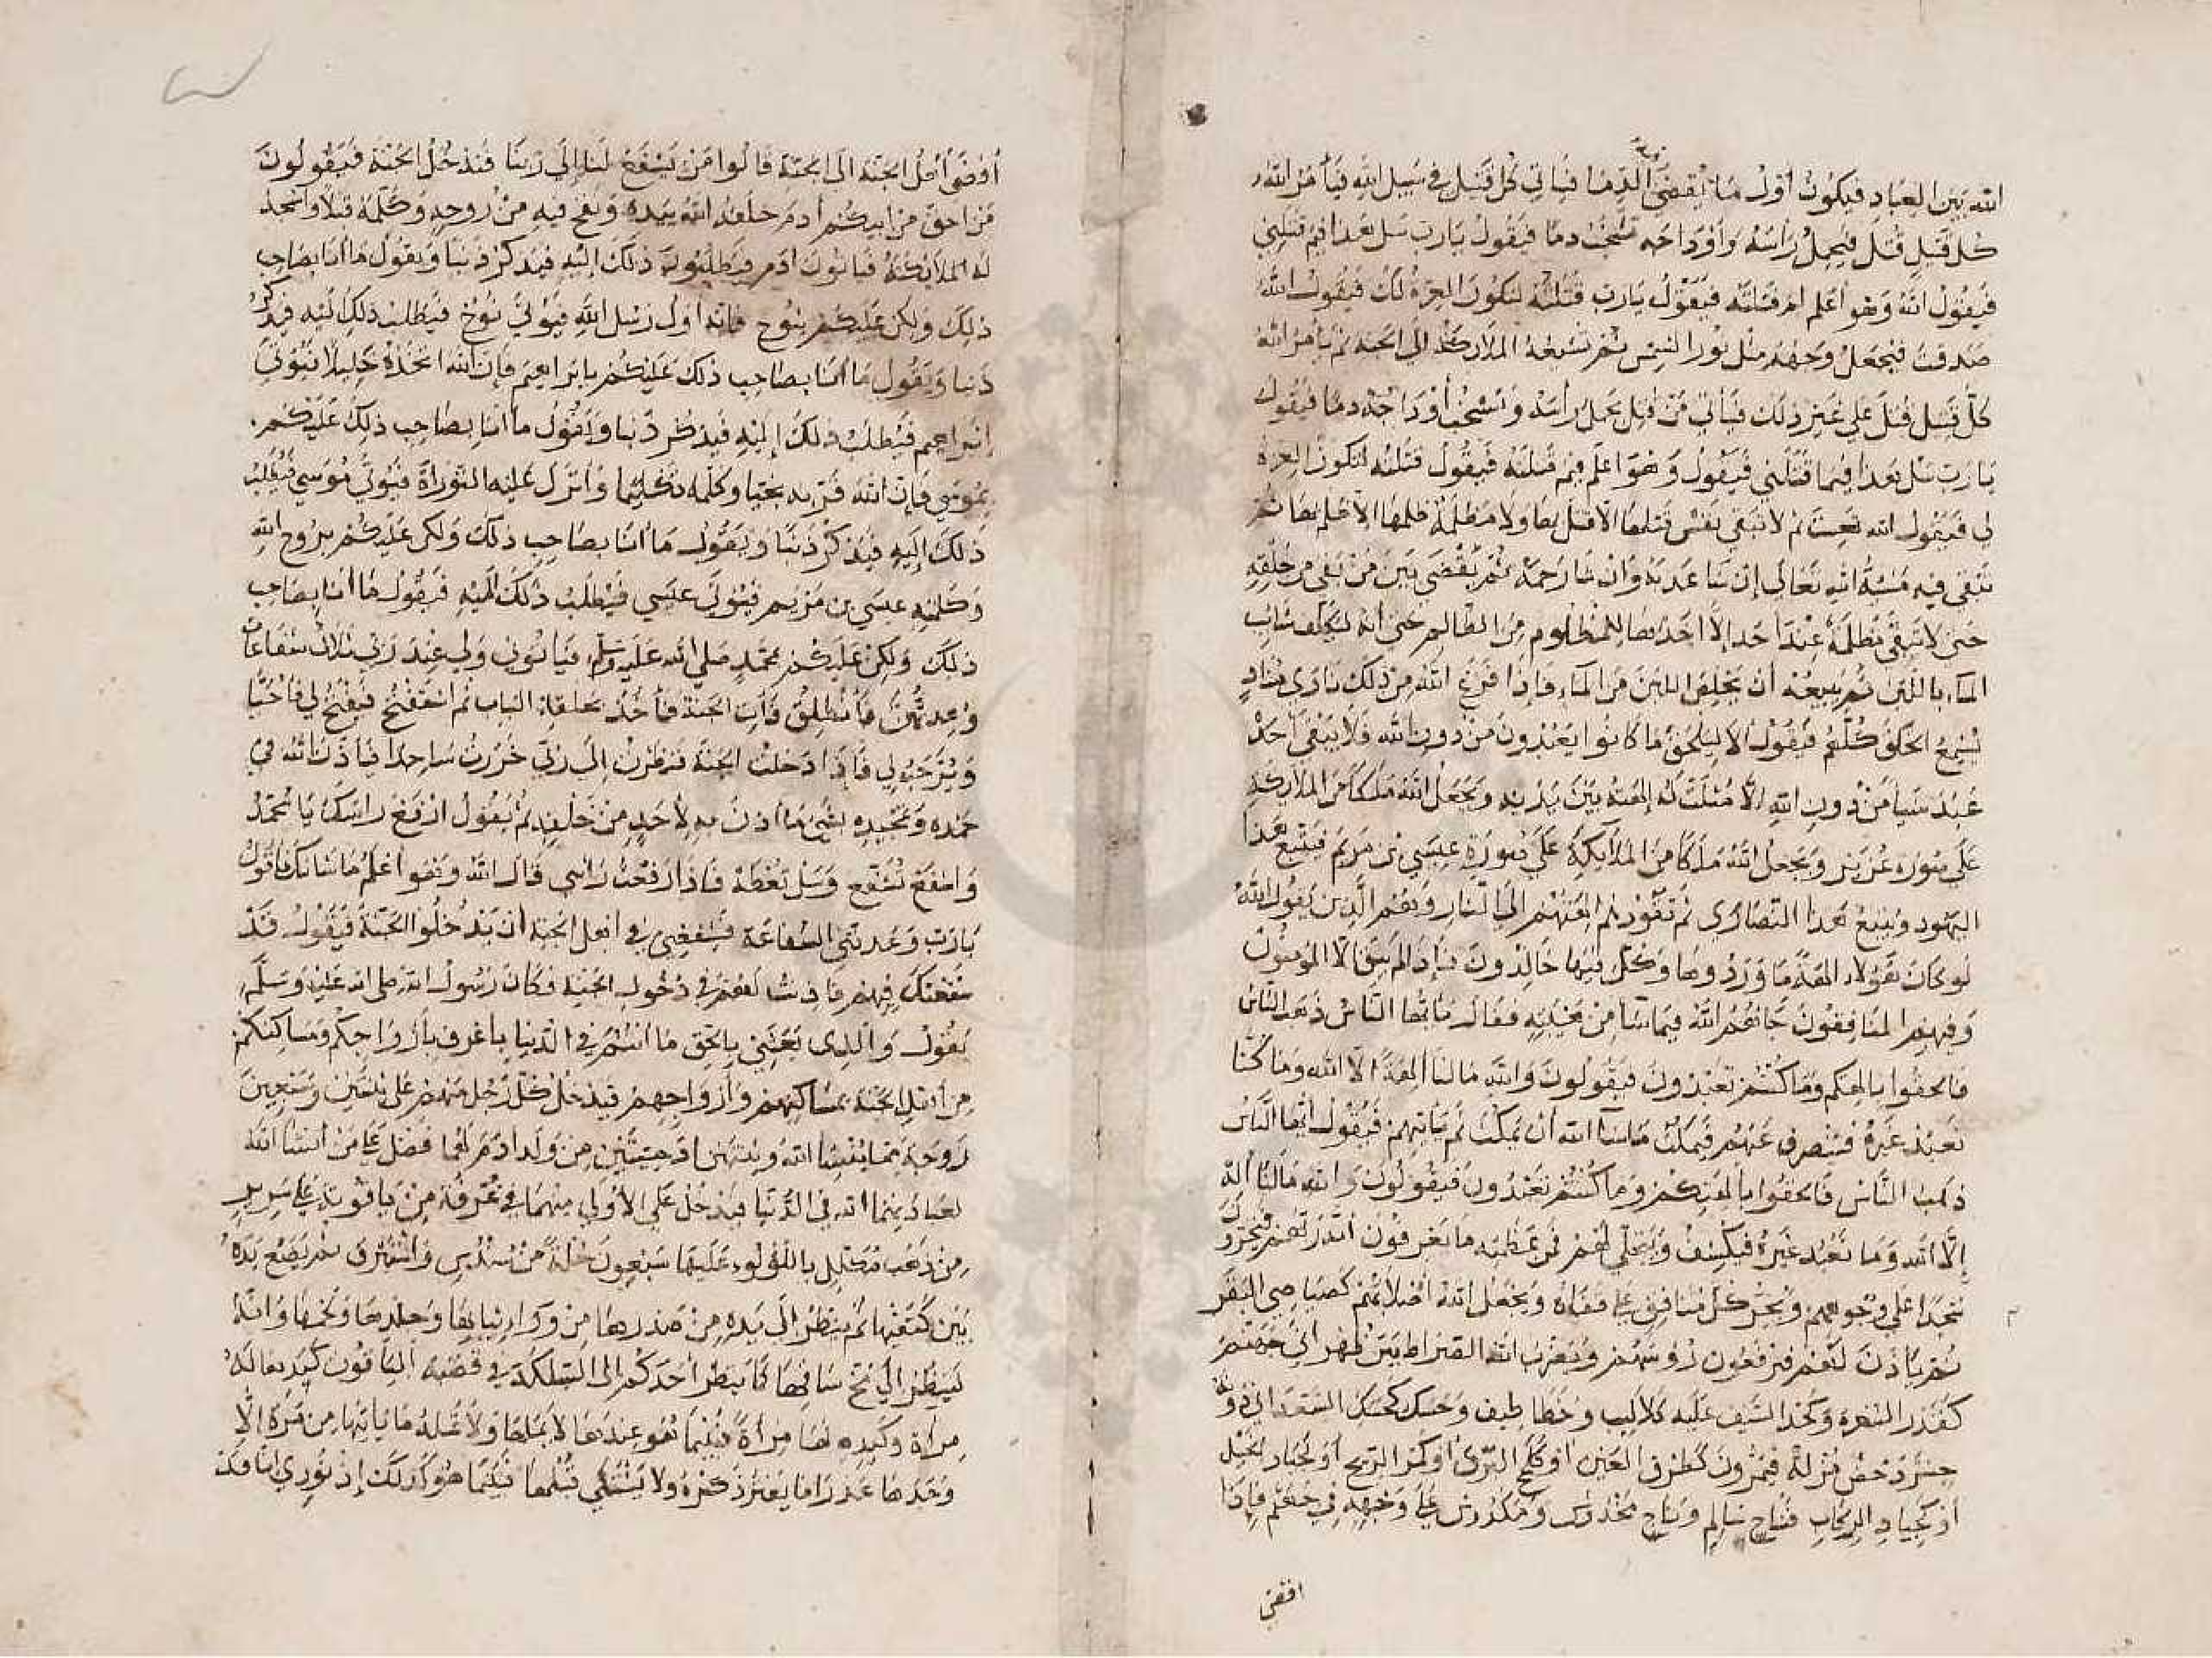 الله بَيْن العِبَادِ فيكون أول مَا يُقضَى الدِمَا فيَاتي كُل قَتيل في سَبيل الله فيَأمُر الله
كل قَتيلٍ قُتلَ فيَحمِلُ رَأسَهُ وَأوْدَاجَه تشخبُ دمًا فيَقولُ يَارَبّ سَل هَذا فيمَ قَتلني
فَيقُولُ الله وَهُو أعلم لم قتلته فيَقُولُ يَارَبّ قتَلتُه لتكونَ العِزة لَك فيقُول الله
صَدقتَ فيَجعلُ وَجهَه مثل نور الشمس ثم تشيعهُ الملايكة الى الجنة ثم يأمرُ الله
كلّ قتيل قُتلَ عَلى غَير ذلك فيَأتي مَن قُتِل يحمل رأسَه وَتشخبُ أوْدَاجُه دمًا فيَقول
يَا رَبّ سَل هذا فيما قتَلني فَيقولُ وَهوَ أعلم فيمَ قتلته فيَقُول قتلته لتكون العِزة
لي فيَقول الله تعِستَ ثم لا تبقى نفسٌ قتلها الا قتل بها ولا مظلمة ظلمها الا ظلم بها ثم
تبقى فيه مَشيةُ الله تعَالى إن شا عَذبَهُ وَان شا رَحمَهُ ثم يُقضَى بَين مَن بَقي مِن خلقه
حَتى لا تبقى مَظلمَةٌ عندَ أحَد إلا أخذهَا للمظلوم مِن الظالم حَتى أنه ليكلف شايب
المآء باللبن ثم يَبيعُه أن يخلِصَ اللبَنَ من المآء فإذا فَرَغ الله من ذلك نادَى منادٍ
يُسمِعُ الخلقَ كلّهُم فيقُول ألا ليَلحَق مَا كانوا يَعْبُدونَ من دون الله فلا يَبقى أحَدٌ
عَبدَ شيأً من دون الله الّا مُثلَت لَه إلهته بَيْنَ يَدَيه وَيجعَلُ الله مَلكًا من الملايكة
عَلى صُورَة عُزَيْر وَيَجعلُ الله مَلكًا منَ الملايكةِ عَلى صُورَةِ عيسَى بْن مَريَم فيَتبعُ هذا
اليَهود وَيَتبعُ هَذا النصَارَى ثُم تقودُهم الهتهُم إلى النَّار وَهُم الَّذين يَقُول الله
لو كان هَؤلاء الهةً مَا وَرَدُوهَا وَكلٌّ فيهَا خَالِدُون فإذا لم يَبْقَ الّا المومنونَ
وَفيهم المنَافِقونَ جَاهمُ الله فيمَا شَا مِن هَيْئتِه فقَالَ يَأيّها النّاسُ ذهَبَ النّاسُ
فالحقوا بِالهتكم وَمَا كنتُم تَعْبُدُونَ فيَقُولونَ وَاللهِ مَا لنا إلهًا الّا الله وَمَا كنّا
نَعبُد غَيرَهُ فيَنْصرف عَنهُم فيَمكثُ مَا شَآ الله أن يَمكثَ ثم يَأتيهِم فيَقولُ أيّها النّاسُ
ذهَبَ النَّاسُ فالحقوا بآلهتِكُم وَمَا كُنتُم تَعْبُدُونَ فيَقُولُونَ وَالله مَا لنَا الهٌ
إلّا الله وَمَا نَعْبُد غَيرَهُ فيَكشِفُ وَيتجلّى لَهُم مِن عَظمَتِه مَا يَعرِفُونَ أنهُ رَبّهُم فيَخِرُّونَ
سُجّدًا عَلى وُجُوههم وَيَخِرُّ كلّ منَافِقٍ عَلى قفَاه وَيجْعَلُ الله أصْلابَهُم كَصَيَاصي البَقَر
ثم يَأذنُ لهُم فيَرفعُونَ رُؤسَهُم وَيَضرِبُ الله الصّراط بَيْنَ ظهرَاني جَهَنّمَ
كَقَدر الشعرة وكحد السّيف عَلَيه كلاليب وَخطَاطيف وَحَسك كحسَك السعدان دُونَه
جسْرٌ دَحضٌ مَزلةٌ فيَمُرّونَ كطرف العَين أو كلَمح البَرق أو كَمَرّ الرّيح أو كجيَاد الخيْل
أو كجيَادِ الرِكابِ فنَاجٍ سَالِم وَنَاجٍ مخدوش وَمَكدُوسٌ عَلى وَجهِهِ في جَهنّم فإذا
افضى
أفضَى أهْلُ الجنّة الى الجنّة قَالُوا مَنْ يَشفَعُ لنَا إلَى رَبّنَا فنَدخُلُ الجَنّة فيَقُولُونَ
مَن أحَقّ مِن أبيكُم أدمَ خلقهُ الله بيَدِهِ وَنفخ فيهِ مِنْ رُوحِهِ وَكَلّمَهُ قبَلاً وَأسْجَدَ
لَهُ الملايكَتهُ فيَأتونَ أدَم فيَطلبُونَ ذلكَ إليْهِ فيَذكُرُ ذنبًا وَيَقولُ مَا أنا بصَاحِب
ذلكَ وَلكن عَليكُم بنُوح فإنه أول رُسُل الله فيُؤتى نُوحٌ فيَطلبُ ذلكَ إليه فيَذكُرُ
ذنبا وَيَقُول مَا أنا بصَاحِب ذلكَ عَليكُم بابرَاهيمَ فإنّ الله اتخذهُ خَليلاً فيُؤتى
إبْرَاهيم فيُطلبُ ذلكَ إليْهِ فيَذكُر ذنْبًا وَيَقُولُ مَا أنَا بصَاحِب ذلكَ عَليْكُم
بمُوسَى فإنّ الله قرّبه نجيّا وَكلّمه تكليمًا وَأنزلَ عَليْه التوراةَ فيُؤتَى مُوسَى فيُطلبُ
ذلكَ إليهِ فيَذكُرُ ذنبًا وَيَقُولُ مَا أنا بصَاحِب ذلكَ وَلكن عَليكُم بِرُوح الله
وَكلمتِه عيسَى بن مَرْيَم فيُؤتى عيسَى فيُطلبُ ذلكَ إليْهِ فيَقُولُ مَا أنا بصَاحِب
ذلكَ وَلكنْ عَليكُم بمحمّدٍ صَلى الله عَليه وَسَلم فيَأتونى وَلي عِندَ رَبّى ثلاثُ شَفاعَاتٍ
وَعَدنيهُنّ فأنطَلِقُ فآتى الجَنّة فآخُذُ بحلقة البَاب ثم أستفتحُ فيُفتحُ لي فأُحَيَّا
وَيُرَحّبُ لي فإذا دَخلتُ الجَنّة فنظرتُ إلى رَبّي خَرَرتُ سَاجِدًا فيَأذنُ الله لي
حَمدِه وَتمجيدِه بشي مَا أذنَ بهِ لأحَدٍ مِنْ خَلْقِه ثم يَقُولُ ارْفعْ رَاسَكَ يَا مُحَمّدُ
وَاشفَعْ تُشفَّع وَسَل تُعْطَه فَإذا رَفعْتُ رَأسي قال الله وَهوَ أعْلمُ مَا شانُكَ فأقولُ
يَارَبّ وَعَدتَني الشفاعَة فشفّعني في أهل الجنة أن يَدْخُلُوا الجَنّةَ فيَقُول قَدْ
شفّعْتكَ فيهم لهُم في دُخُول الجَنّة فكَانَ رَسُولُ الله صلى الله عَليه وَسَلّم
يَقُول وَالّذِى بَعَثَني بِالحَقّ مَا أنتُم في الدّنيا بأعرف بأزوَاجكُم وَمَسَاكنكُم
مِن أهْلِ الجَنّة بمسَاكنهم وَأزوَاجهِم فيَدخُلُ كلّ رَجُل منهُم عَلى ثنتَين وَسَبعينَ
زَوجَةً ممّا يُنْشِأ الله وَ مِن وَلد أدَم لهُمَا فضلٌ عَلى مَنْ أنشأ الله
لعبَادتهمَا الله في الدّنْيَا فيَدخُل عَلى الأولى منهُمَا في غُرفة مِن يَاقوتة عَلى سَرير
مِن ذهَب مُكلّل باللؤلؤ عَليهَا سَبْعُونَ حُلةً مِنْ سُندُسٍ وَاسْتَبرق ثم يَضَعُ يَدَهُ
بَيْن كَتفيْهَا ثم يَنظُرُ إلى يَدِهِ مِن صَدرهَا مِنْ وَرَاءِ ثيَابِهَا وَجِلدِهَا وَلَحْمهَا وَإنهُ
ليَنظُرُ إلى مُخّ سَاقِهَا كَمَا يَنظُرُ أحَدكُم إلى السّلك في قصَبَة اليَاقُوت كَبدهَا لَهُ
مِرآة وَكَبدِه لهَا مِرأة فبَيْنَمَا هُو عِندهَا لا يَملهَا وَلا تملهُ مَا يَأتيهَا مِن مَرّة إلّا
وَجَدهَا عَذرَا مَا يَفتُر ذكَرُه ولا يَشْتَكي قُبُلها فبَيْنَمَا هُوَ كَذلكَ إذ نُودِي انا قد